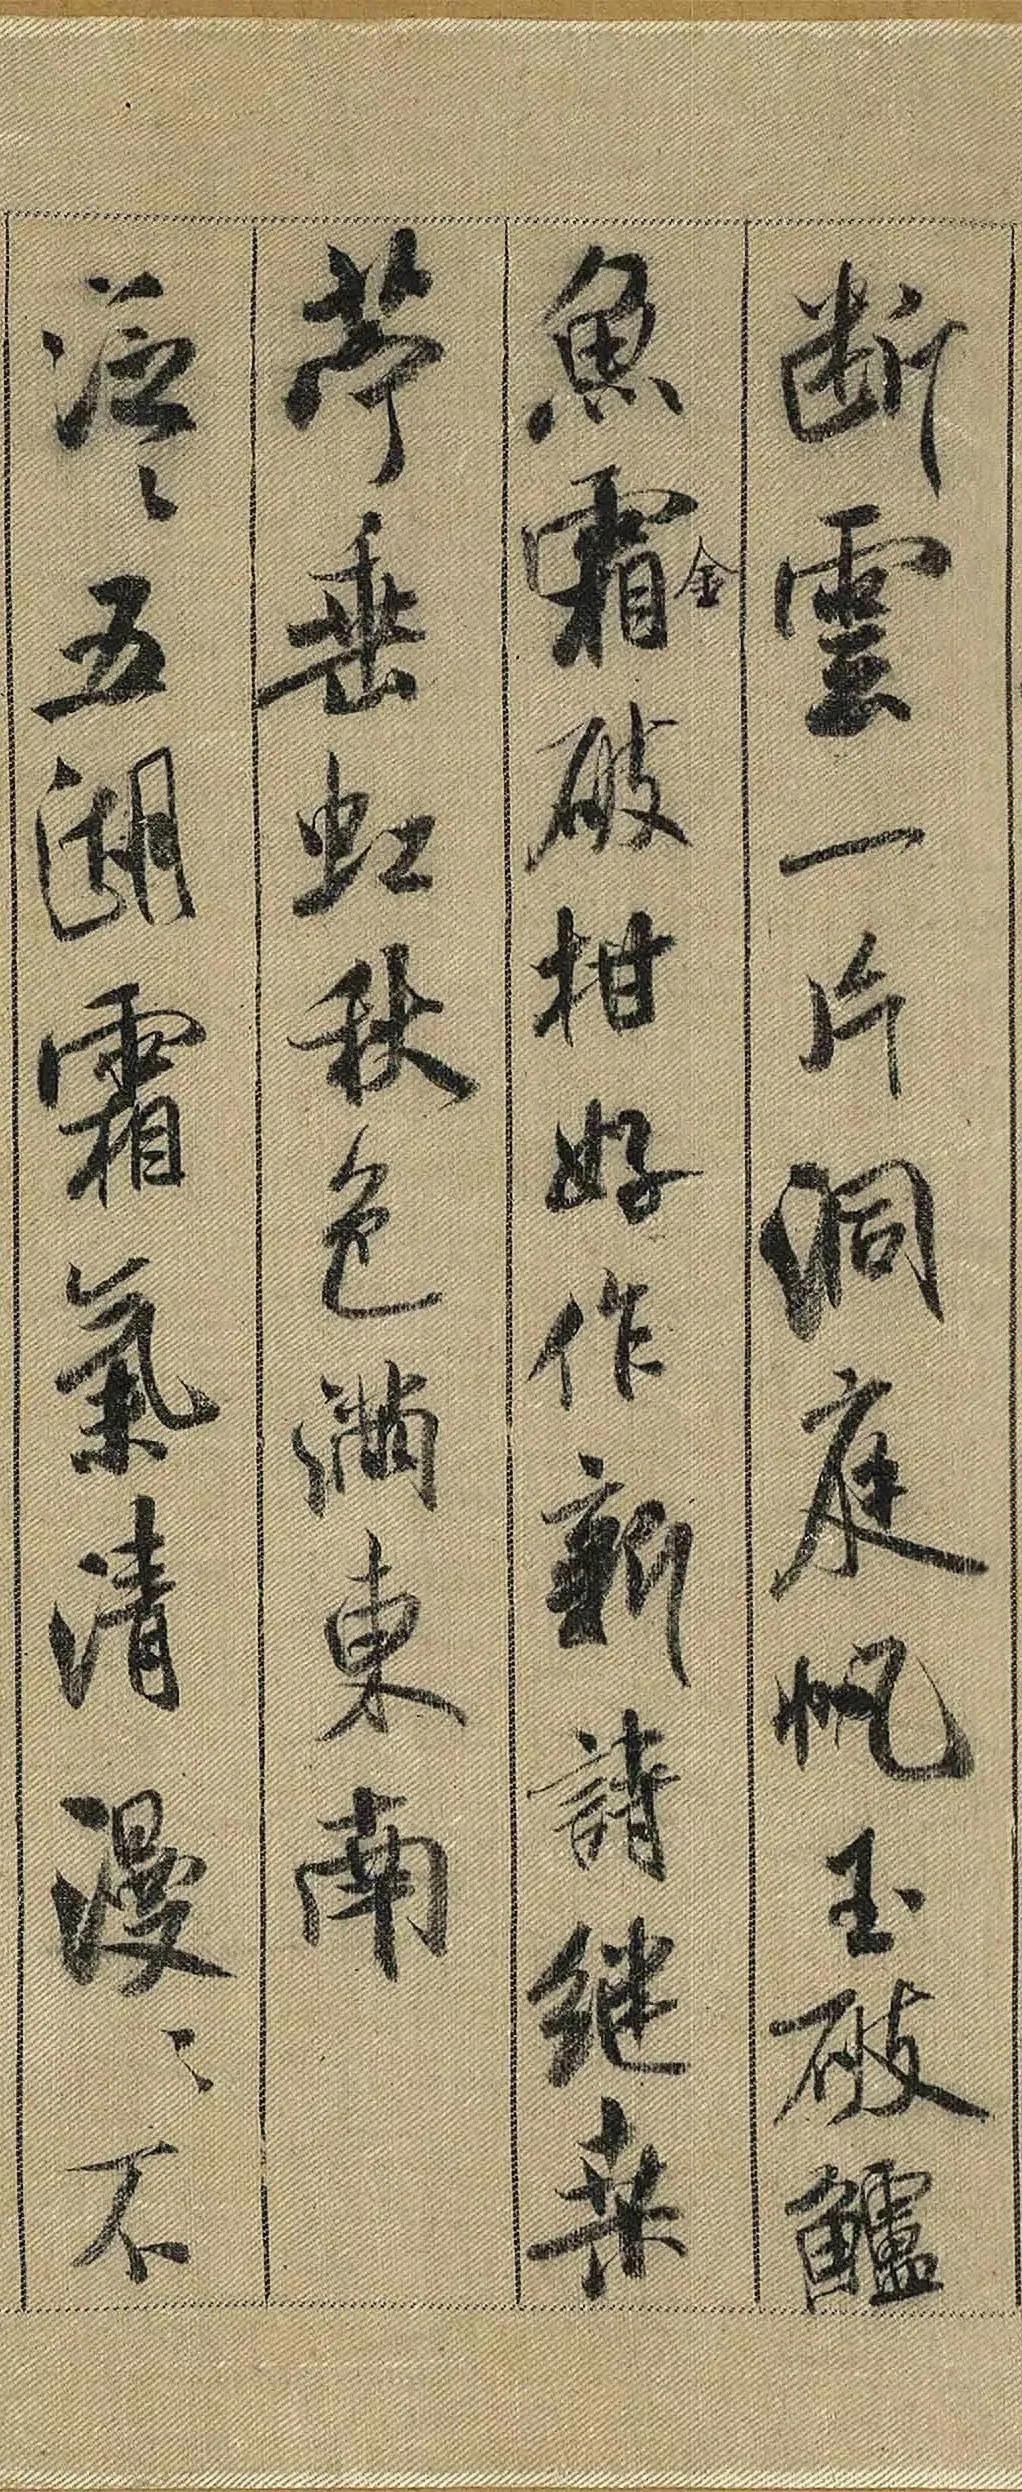 断雲一片洞庭帆玉破鱸
魚霜金破柑好作新詩継桑
苧垂虹秋色滿東南
泛〻五湖霜氣清漫〻不